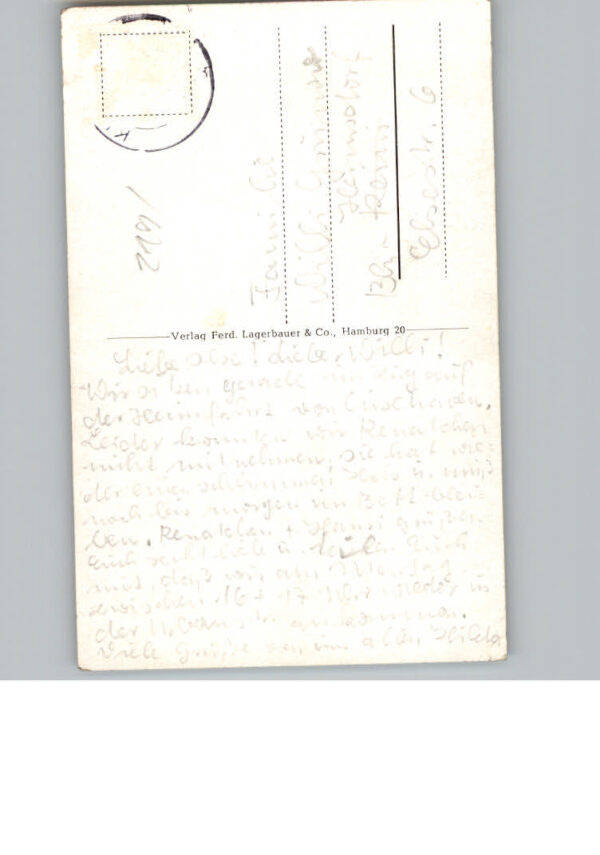 Familie
Willi
Hermsdorf
Bln.
Elsestr. 6
2191
Verlag Ferd. Lagerbauer & Co., Hamburg 20
Liebe Else! Lieber Willi!
Wir sitzen gerade im Zug auf
der Heimfahrt von Cuxhaven.
Leider konnten wir Renatchen
nicht mitnehmen, sie hat wie-
der einen schlimmen Hals u. muß
noch bis morgen im Bett blei-
ben. Renatchen + Hansi grüßen
Euch recht lieb u. teilen Euch
mit, daß wir am Montag
zwischen 16 + 17 Uhr wieder in
der ankommen.
Viele Grüße von uns allen, Hilda